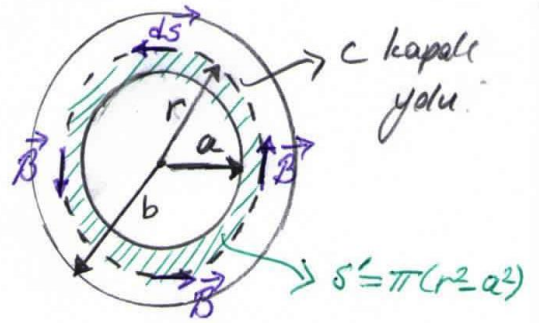 ds
C kapalı
yolu.
r
a
B
B
b
S' = π(r²-a²)
B